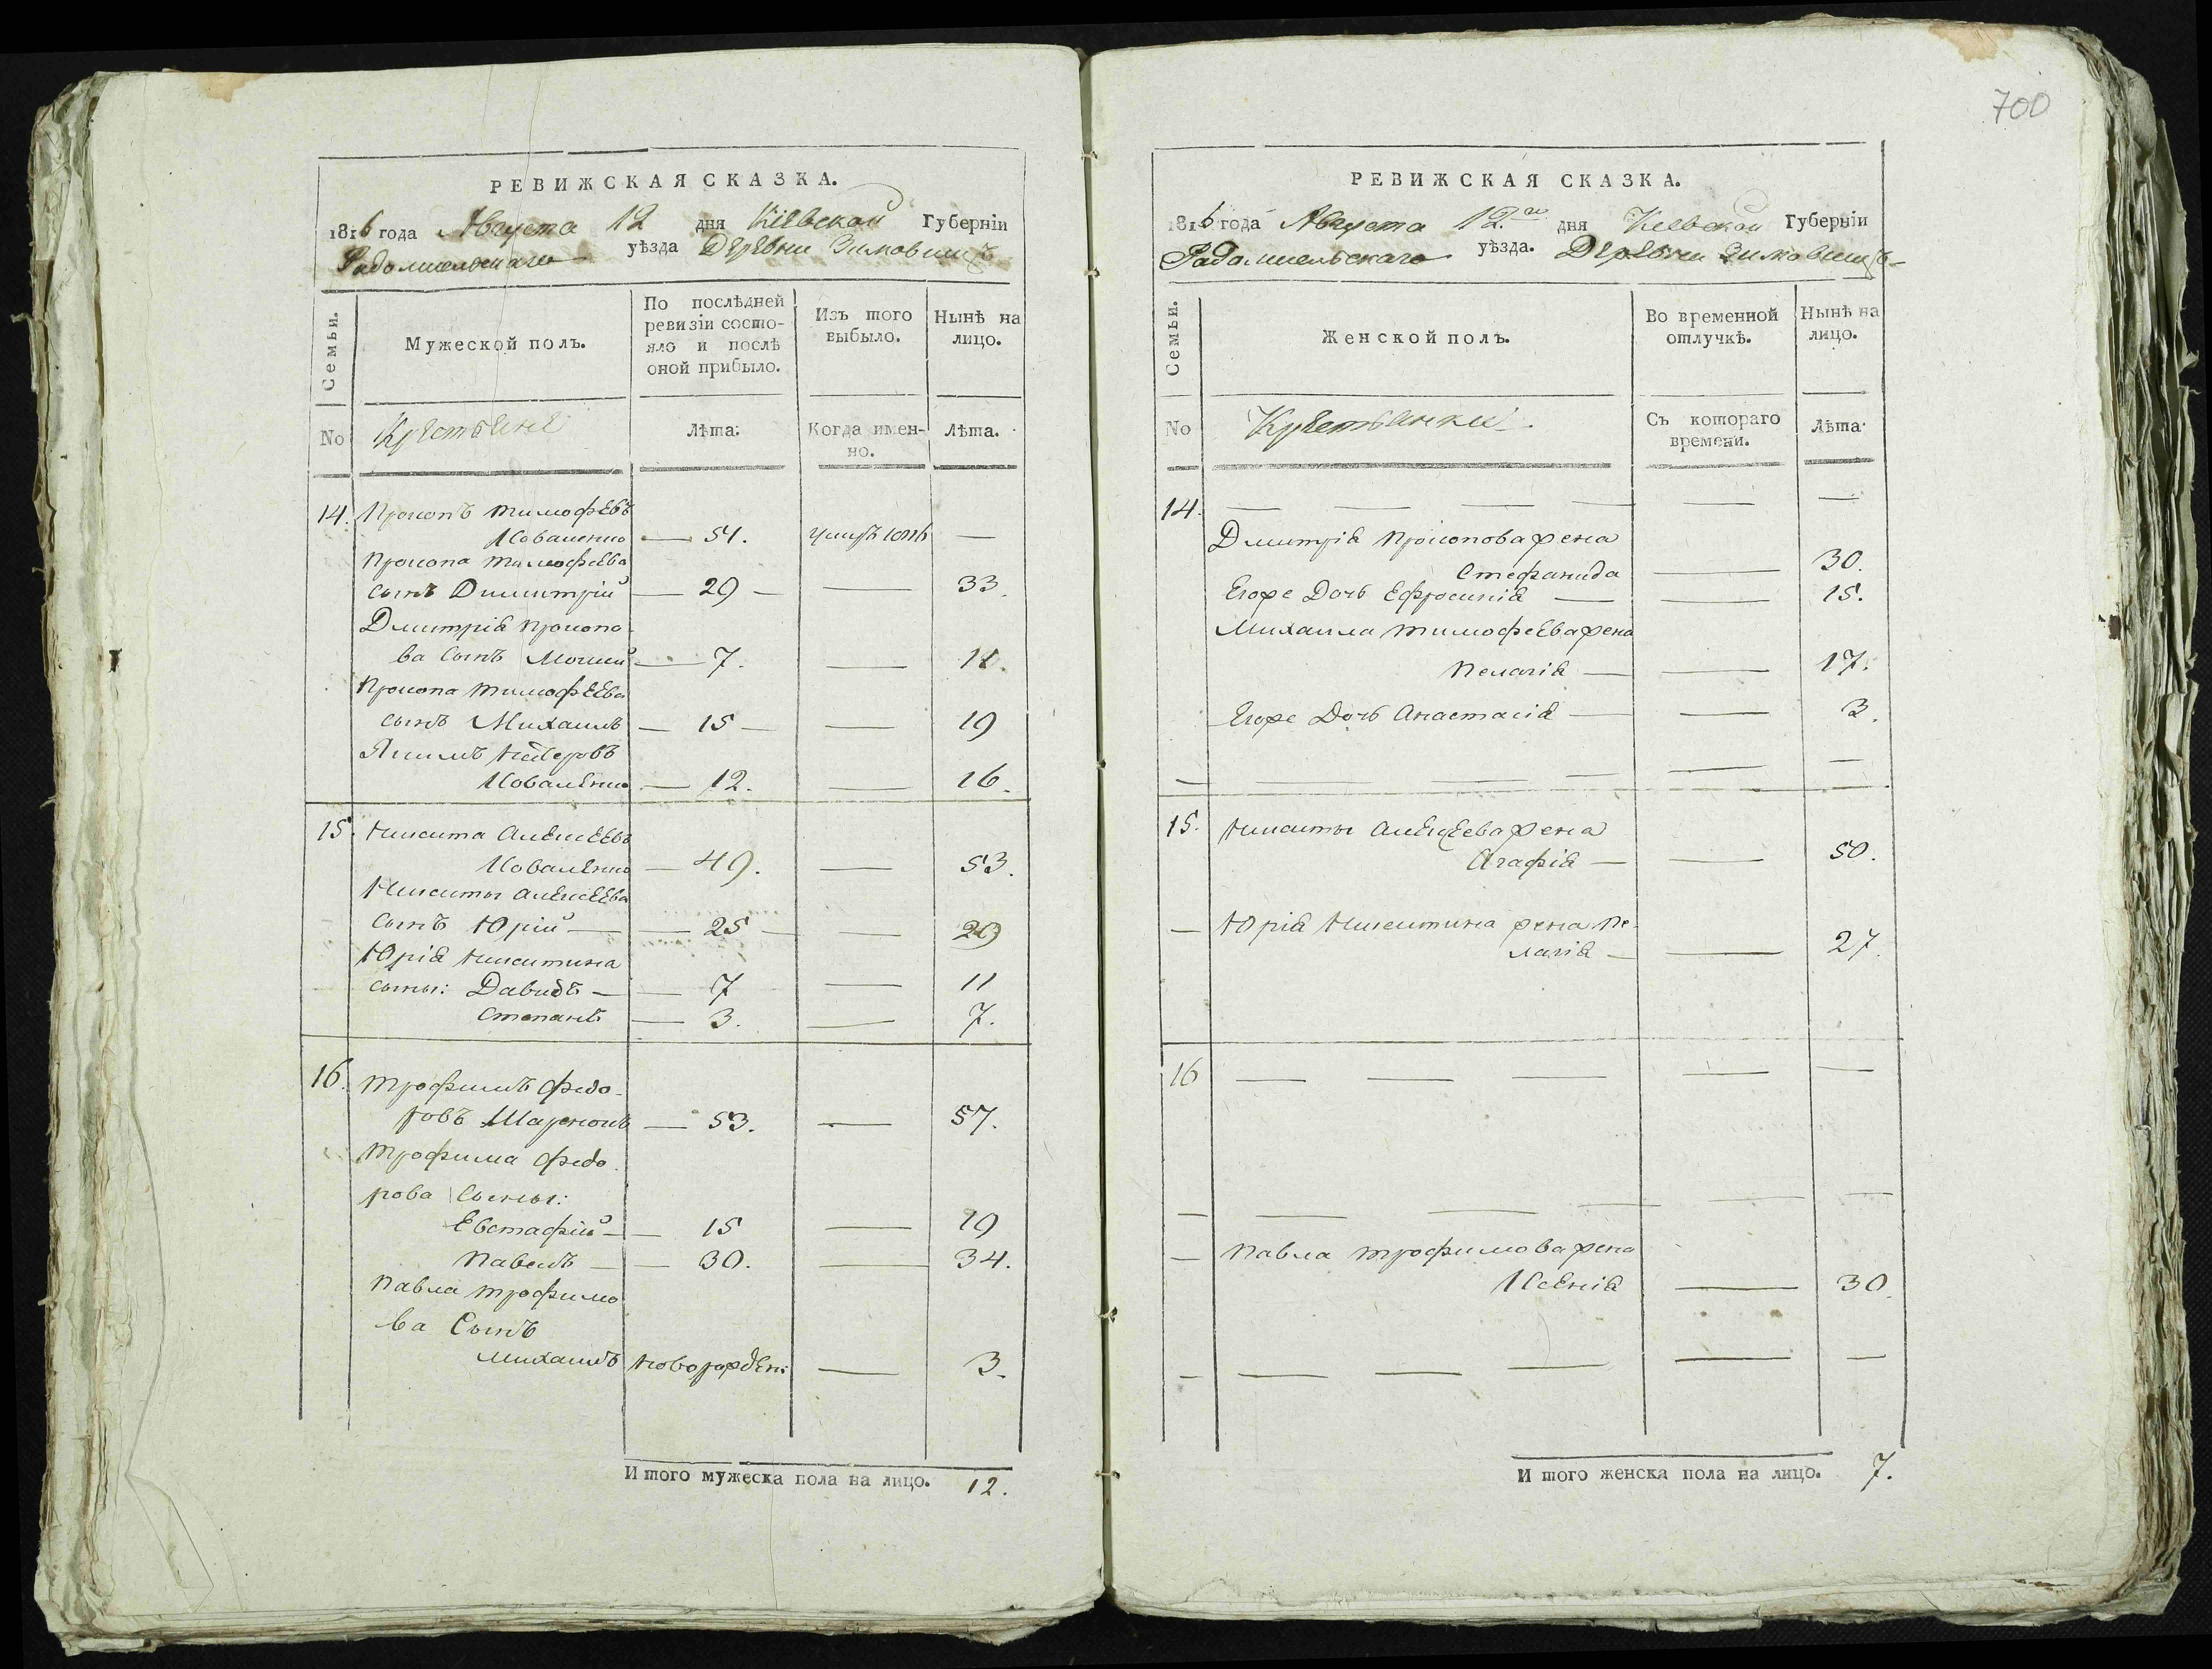 РЕВИЖСКАЯ СКАЗКА.
1816 года Августа 12 дня Кіевской Губерніи
Радомисльскаго уѣзда Деревни Зимовищъ
Семьи.
Мужеской полъ.
По послѣдней ревизіи состо-
яло и послѣ оной прибыло.
Изъ того выбыло.
Нынѣ на лицо.
No
Крестьяне
Лѣта.
Когда имен-
но.
Лѣта.
14. Прокопъ Тимофѣевъ
Коваленко — 54. —
Прокопа Тимофеева
сынъ Димитрій — 29 — — 33.
Дмитрія Прокопо-
ва Сынъ Мокій — 7. — 11.
Прокопа Тимофѣева
сынъ Михаилъ — 15 — — 19
Якимъ
Коваленко — 12. — 16.
15. Никита Алексѣевъ
Коваленко — 49. — 53.
Никиты Алексѣева
сынъ Юрій — — 25 — — 29
Юрія Никитина
сыны: Давидъ — — 7 — 11
Степанъ — 3. — 7.
16. Трофимъ Федо-
ровъ — 53. — 57.
Трофима Федо-
рова Сыны:
Евстафій — — 15 — 19
Павелъ — — 30. — 34.
Павла Трофимо
ва Сынъ
Михаилъ новорожден: — 3.
И того мужеска пола на лицо. 12.
700
РЕВИЖСКАЯ СКАЗКА.
1816 года Августа 12.го дня Кіевской Губерніи
Радомисльскаго уѣзда. Деревни Зимовищъ
Семьи.
Женской полъ.
Во временной отлучкѣ.
Нынѣ на лицо.
No
Крестьянки.
Съ котораго времени.
Лѣта.
14. — — — — — —
Дмитрія Прокопова жена
Стефанида — 30.
Егоже Дочь Ефросинія — — 15.
Михаила Тимофеева жена
Пелагія — — 17.
Егоже Дочь Анастасія — — 3.
— — — — — —
15. Никиты Алексѣева жена
Агафія — — 50.
— Юрія Никитина жена Пе-
лагія — — 27.
16 — — — — —
— — — — — —
— Павла Трофимова жена
Ксенія — 30.
— — — — — —
И того женска пола на лицо. 7.